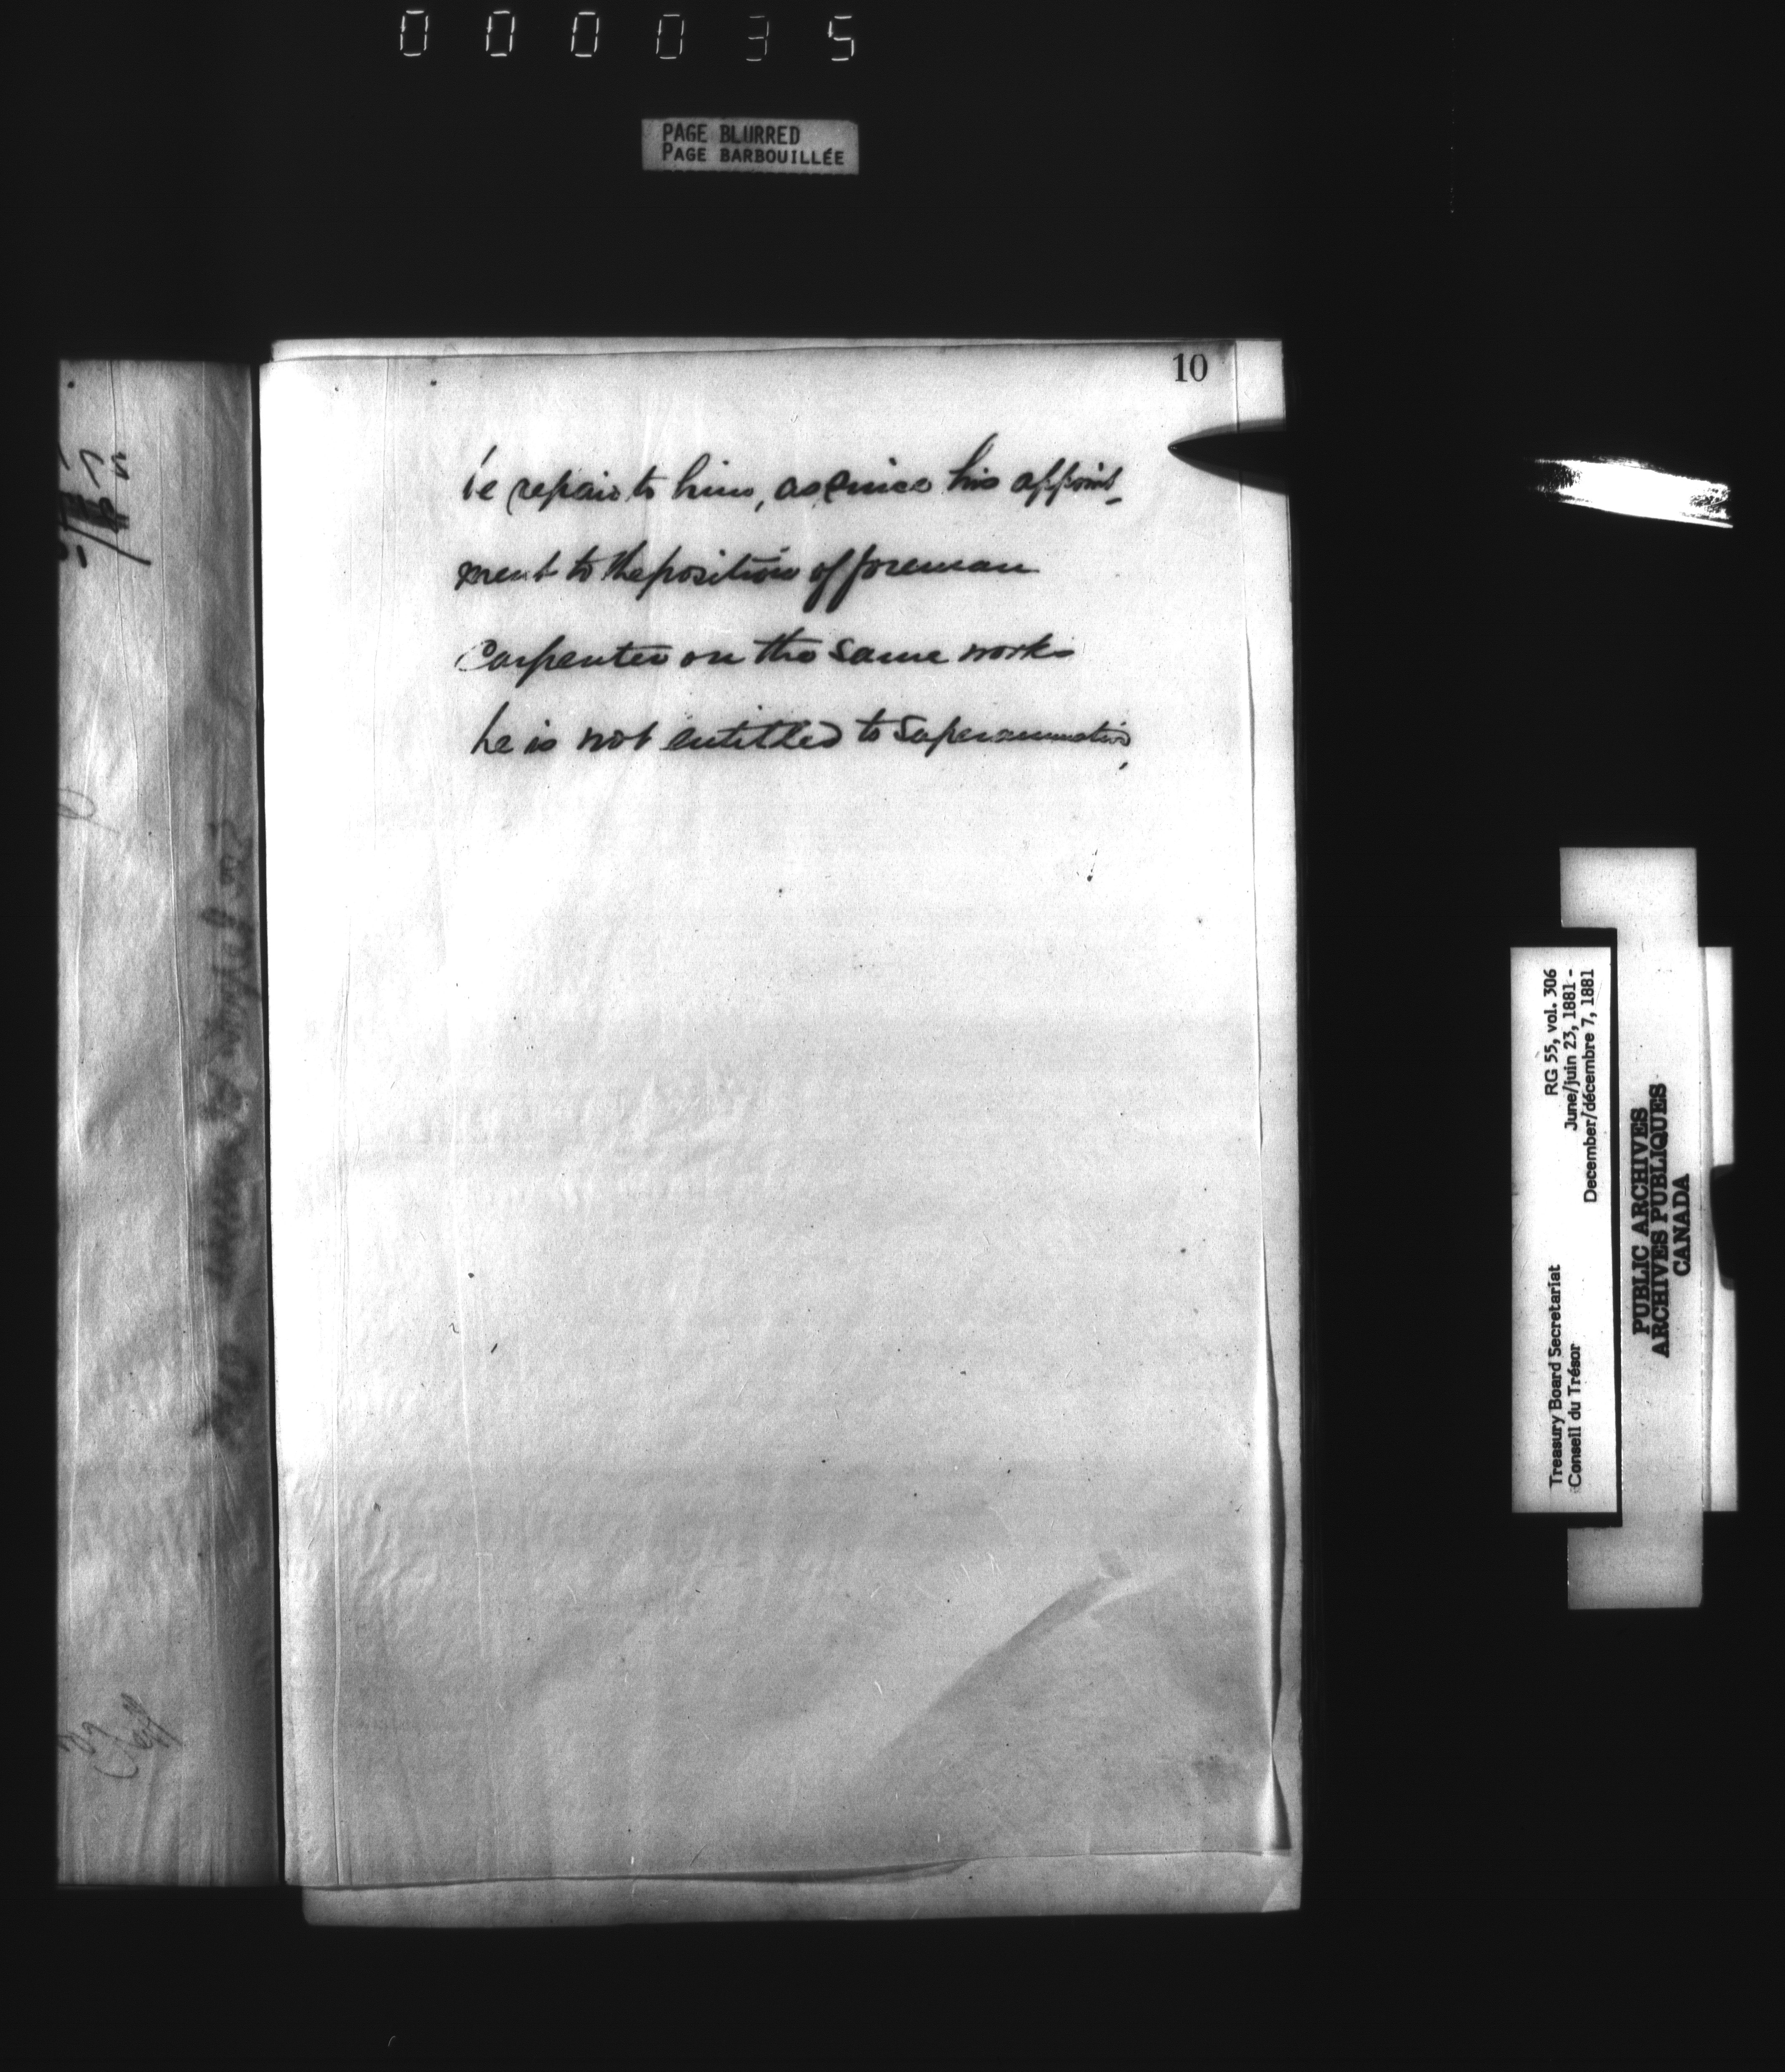 000035
PAGE BLURRED
PAGE BARBOUILLÉE
10
be repaid to him, as since his appoint-
ment to the position of foreman
Carpenter on the same works
he is not entitled to superannuation
Treasury Board Secretariat RG 55, vol. 306
Conseil du Trésor June/juin 23, 1881 -
December/décembre 7, 1881
PUBLIC ARCHIVES
ARCHIVES PUBLIQUES
CANADA